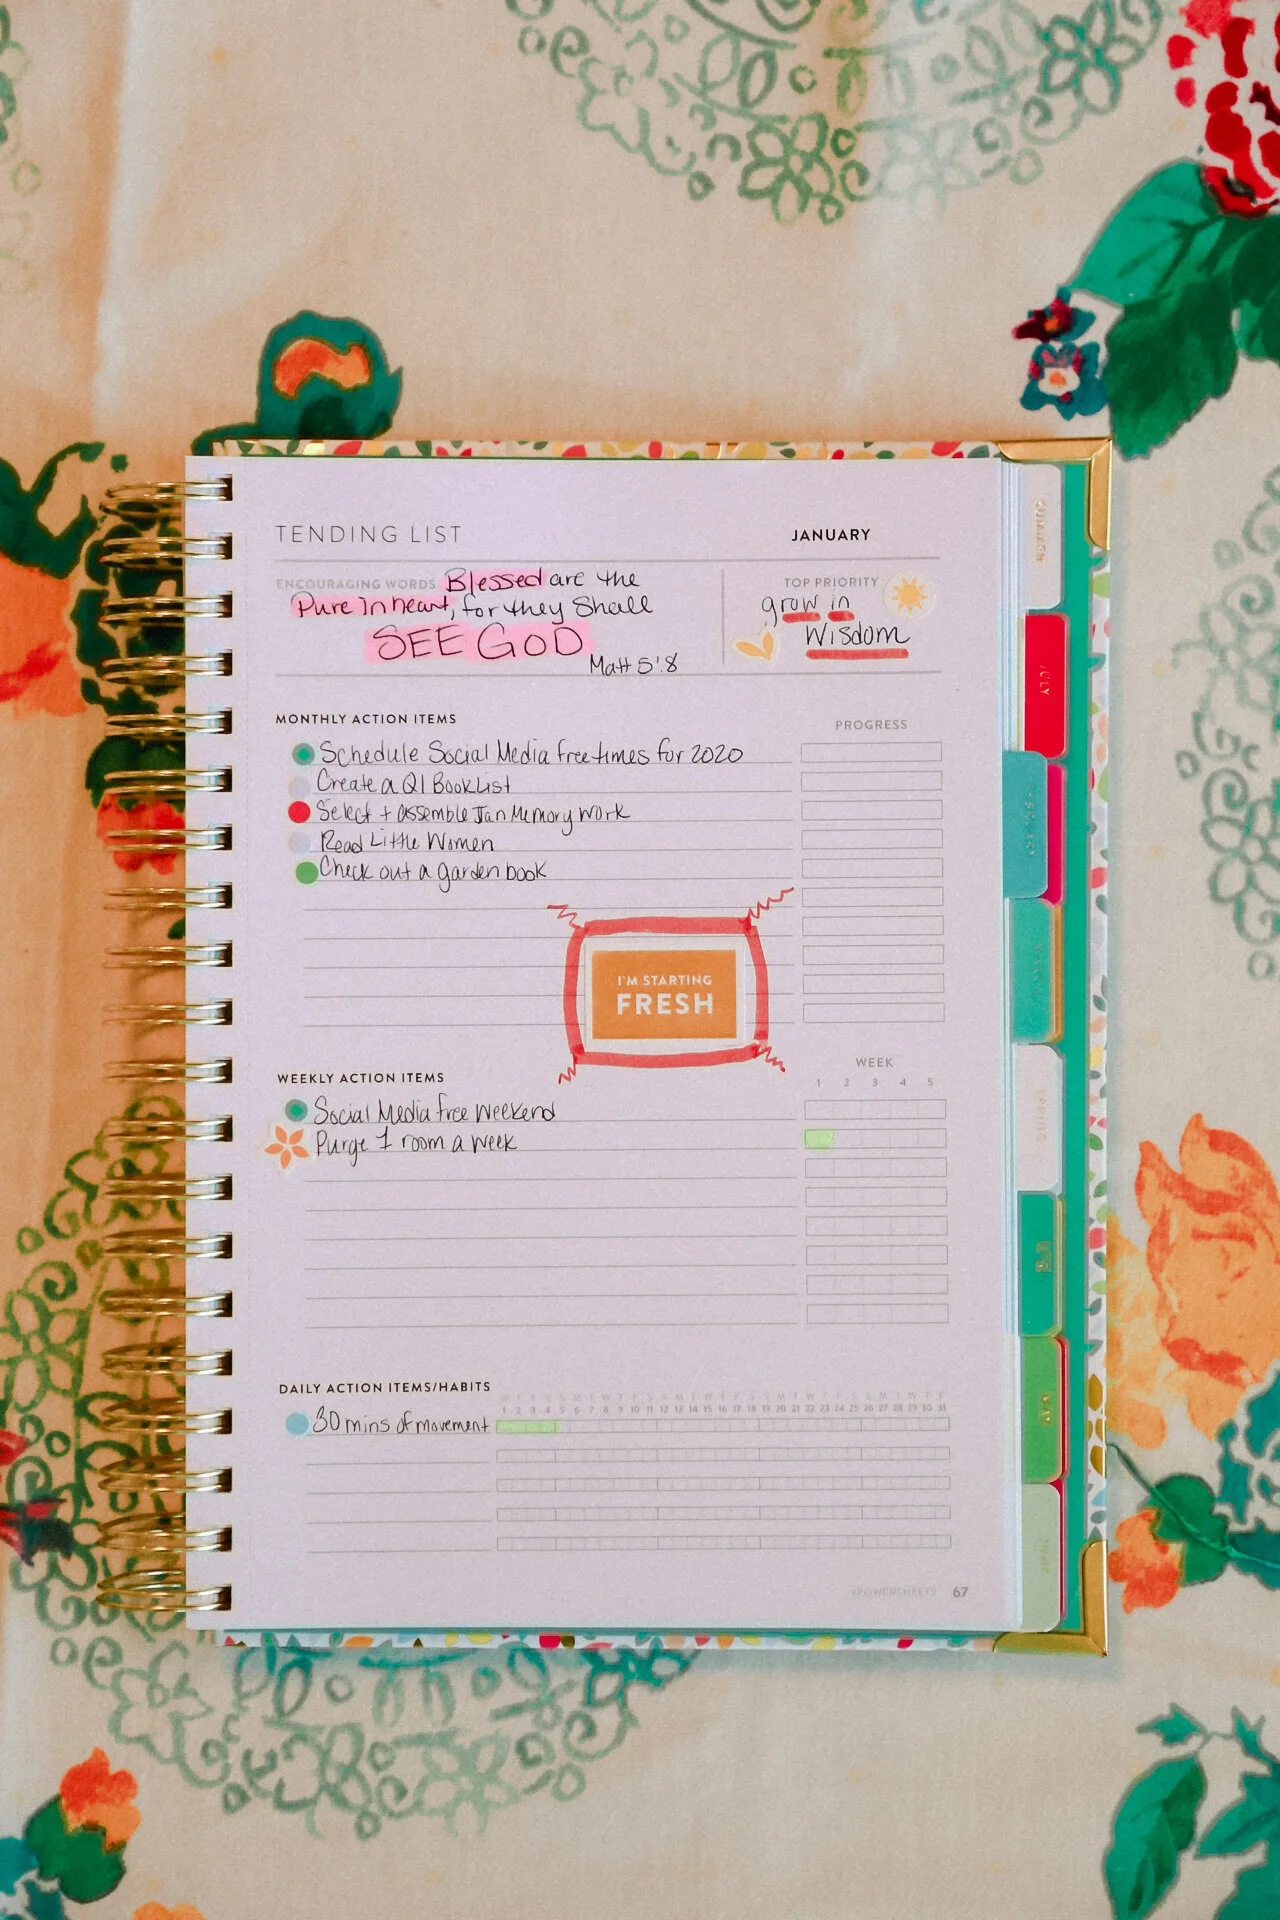 TENDING LIST
JANUARY
ENCOURAGING WORDS Blessed are the
Pure in heart, for they shall
SEE GOD
Matt 5:8
TOP PRIORITY
grow in
Wisdom
MONTHLY ACTION ITEMS
PROGRESS
Schedule Social Media free times for 2020
Create a Q1 Book List
Select + assemble Jan Memory Work
Read Little Women
Check out a garden book
I'M STARTING
FRESH
WEEKLY ACTION ITEMS
WEEK
1 2 3 4 5
Social Media free weekend
Purge 1 room a week
DAILY ACTION ITEMS/HABITS
W T F S S M T W T F S S M T W T F S S M T W T F S S M T W T F
1 2 3 4 5 6 7 8 9 10 11 12 13 14 15 16 17 18 19 20 21 22 23 24 25 26 27 28 29 30 31
30 mins of movement
#POWERSHEETS 67
JULY
MAY